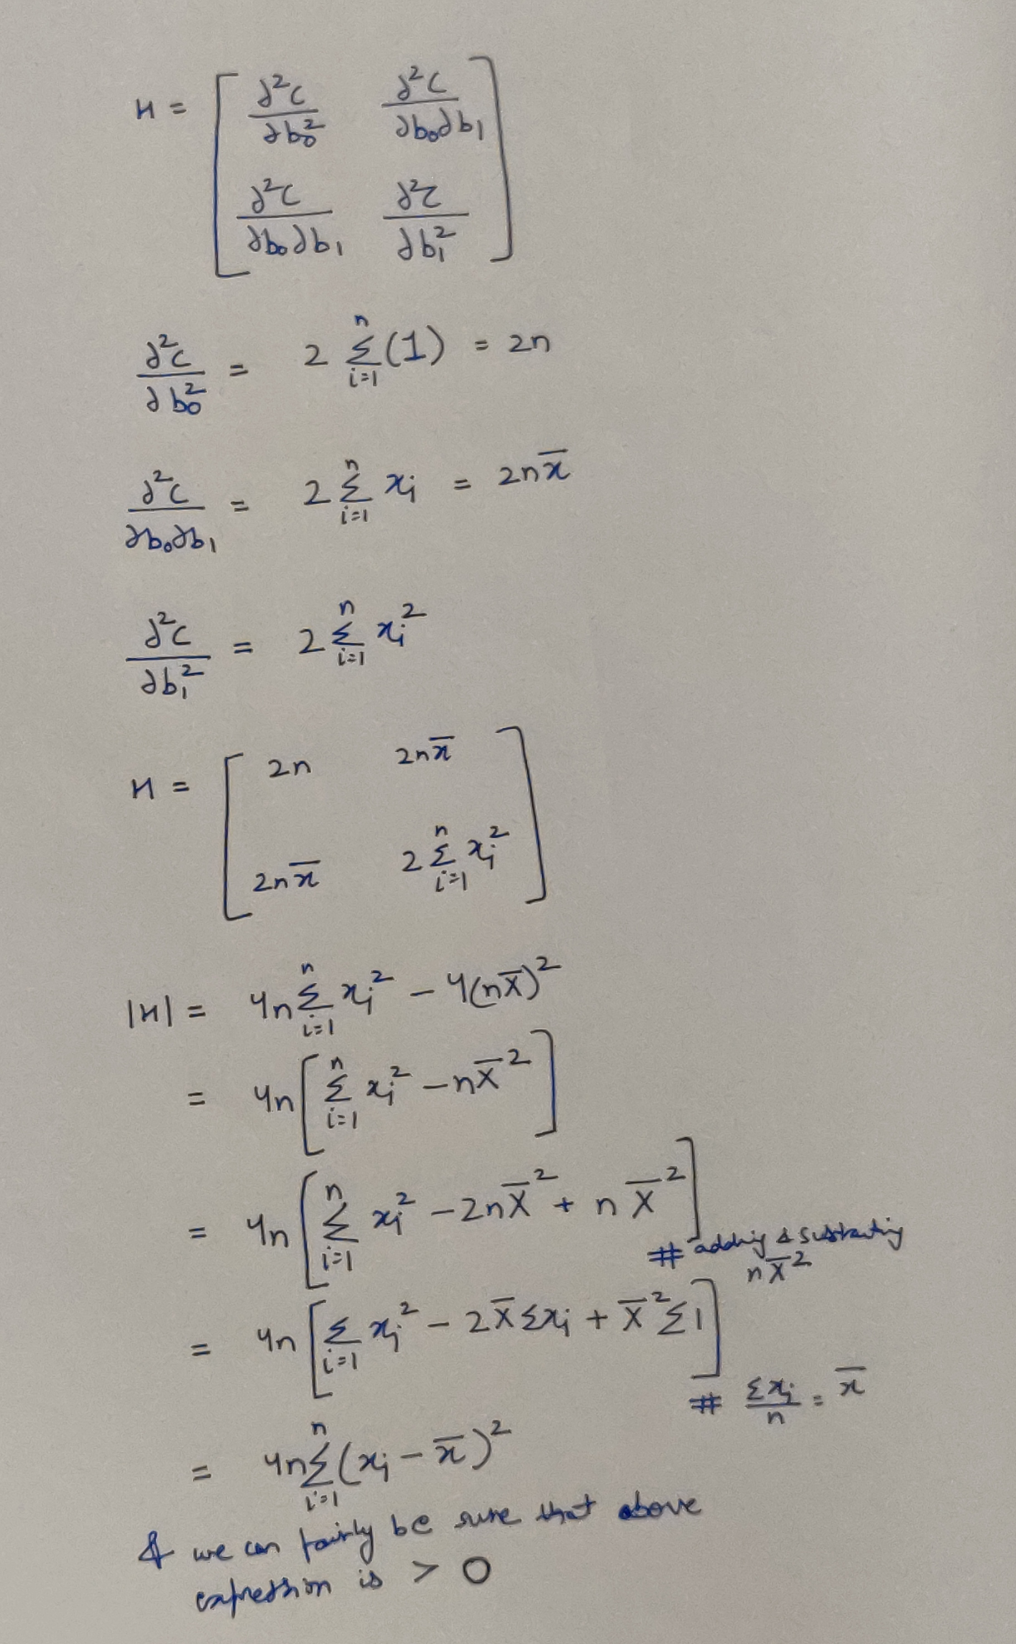 H = [ ∂²C/∂b₀² ∂²C/∂b₀∂b₁
∂²C/∂b₀∂b₁ ∂²C/∂b₁² ]
∂²C/∂b₀² = 2 Σᵢ₌₁ⁿ (1) = 2n
∂²C/∂b₀∂b₁ = 2 Σᵢ₌₁ⁿ xᵢ = 2nx̅
∂²C/∂b₁² = 2 Σᵢ₌₁ⁿ xᵢ²
H = [ 2n 2nx̅
2nx̅ 2 Σᵢ₌₁ⁿ xᵢ² ]
|H| = 4n Σᵢ₌₁ⁿ xᵢ² − 4(nX̅)²
= 4n [ Σᵢ₌₁ⁿ xᵢ² − nX̅² ]
= 4n [ Σᵢ₌₁ⁿ xᵢ² − 2nX̅² + nX̅² ]
# adding & substracting
nX̅²
= 4n [ Σᵢ₌₁ xᵢ² − 2X̅Σxᵢ + X̅²Σ1 ]
# Σxᵢ/n = x̅
= 4n Σᵢ₌₁ⁿ (xᵢ − x̅)²
& we can fairly be sure that above
expression is > 0